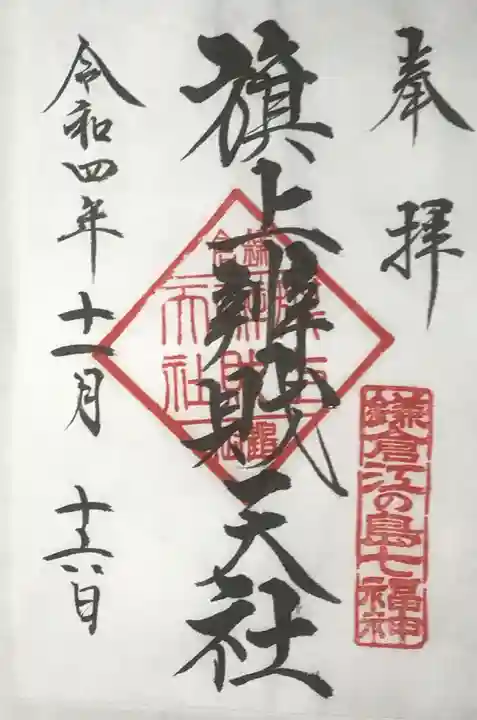 奉拝
鎌倉江の島七福神
旗上辨財天社
令和四年十一月十六日